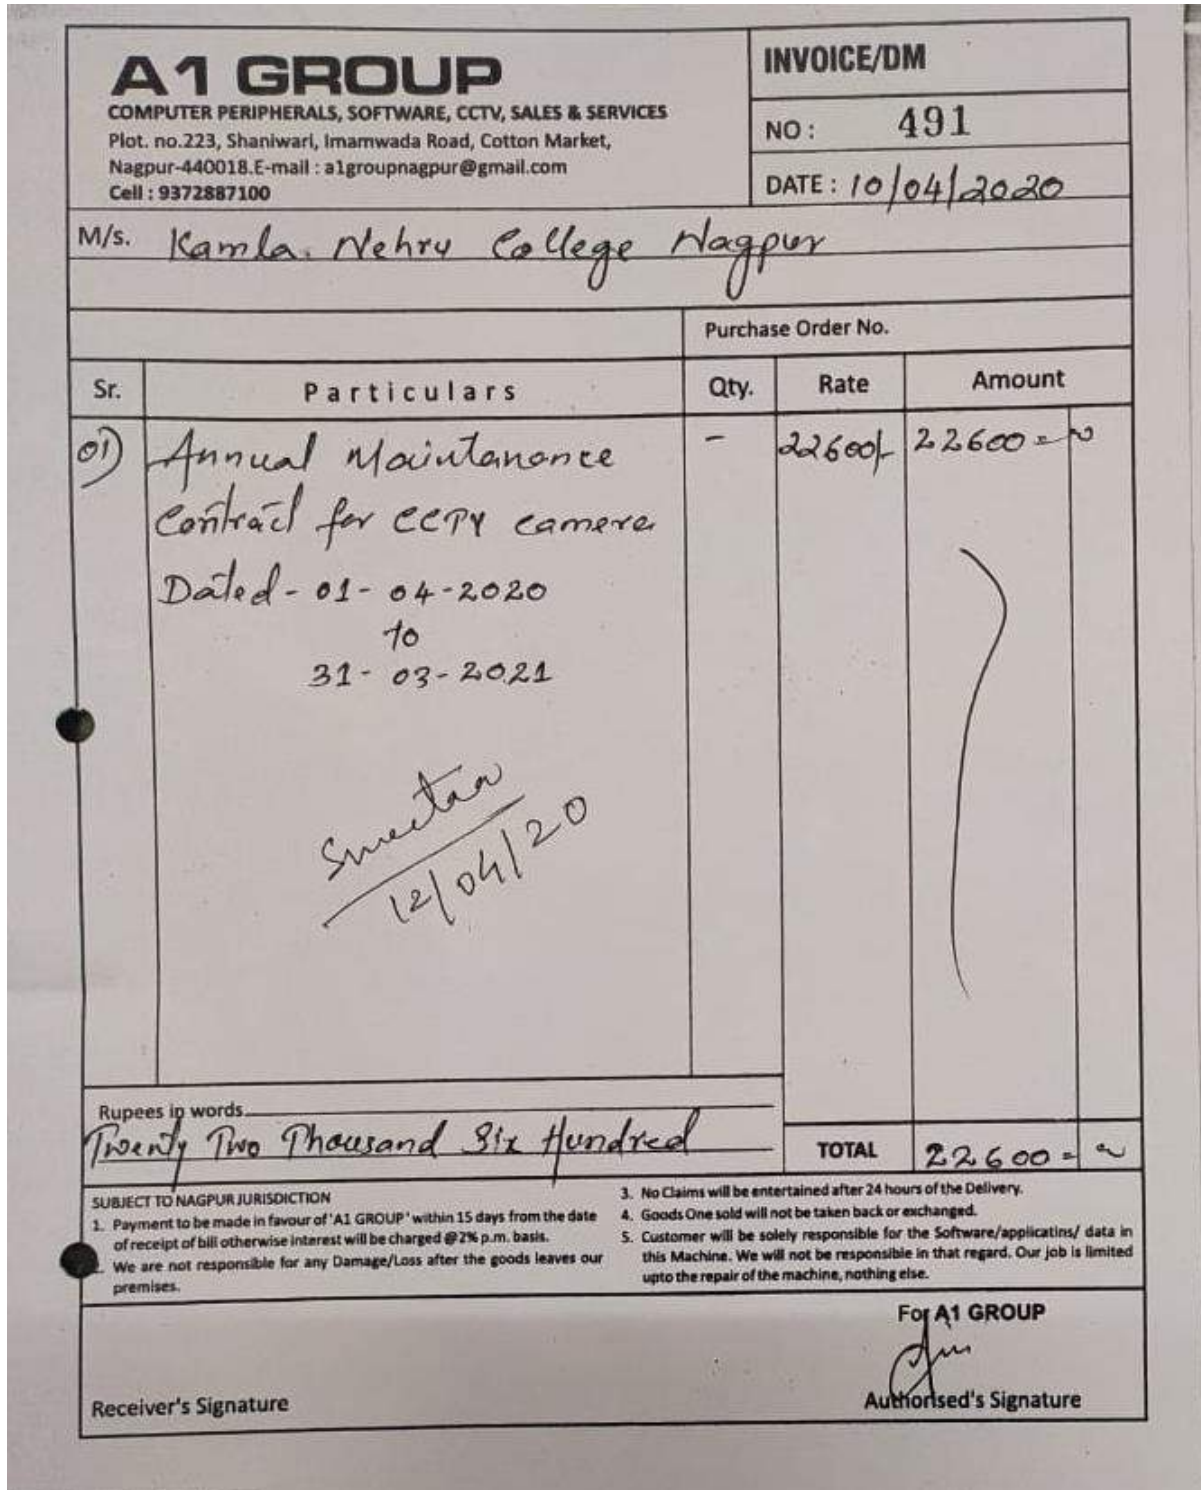 A1 GROUP
COMPUTER PERIPHERALS, SOFTWARE, CCTV, SALES & SERVICES
Plot. no.223, Shaniwari, Imamwada Road, Cotton Market,
Nagpur-440018.E-mail : a1groupnagpur@gmail.com
Cell : 9372887100
INVOICE/DM
NO : 491
DATE : 10/04/2020
M/s. Kamla. Nehru College Nagpur
Purchase Order No.
Sr. Particulars Qty. Rate Amount
01) Annual Maintanance - 22600/- 22600 =
Contract for CCTV camera
Dated - 01 - 04 - 2020
to
31 - 03 - 2021
12/04/20
Rupees in words
Twenty Two Thousand Six Hundred
TOTAL 22600 =
SUBJECT TO NAGPUR JURISDICTION
1. Payment to be made in favour of 'A1 GROUP' within 15 days from the date
of receipt of bill otherwise interest will be charged @2% p.m. basis.
We are not responsible for any Damage/Loss after the goods leaves our
premises.
3. No Claims will be entertained after 24 hours of the Delivery.
4. Goods One sold will not be taken back or exchanged.
5. Customer will be solely responsible for the Software/applicatins/ data in
this Machine. We will not be responsible in that regard. Our job is limited
upto the repair of the machine, nothing else.
For A1 GROUP
Receiver's Signature
Authorised's Signature